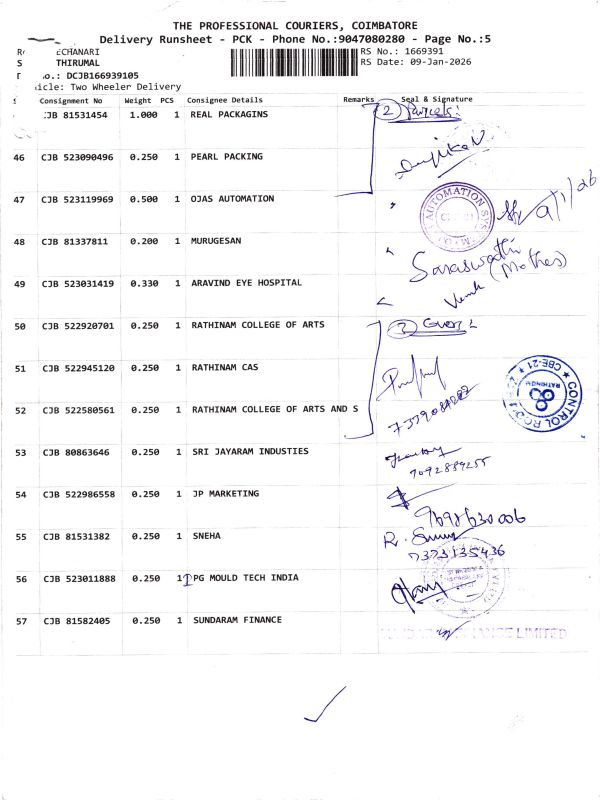 THE PROFESSIONAL COURIERS, COIMBATORE
Delivery Runsheet - PCK - Phone No.:9047080280 - Page No.:5
ECHANARI
RS No.: 1669391
THIRUMAL
RS Date: 09-Jan-2026
o.: DCJB166939105
icle: Two Wheeler Delivery
Consignment No Weight PCS Consignee Details Remarks Seal & Signature
CJB 81531454 1.000 1 REAL PACKAGINS
46 CJB 523090496 0.250 1 PEARL PACKING
47 CJB 523119969 0.500 1 OJAS AUTOMATION
AUTOMATION
48 CJB 81337811 0.200 1 MURUGESAN
Saraswathi (Mother)
49 CJB 523031419 0.330 1 ARAVIND EYE HOSPITAL
50 CJB 522920701 0.250 1 RATHINAM COLLEGE OF ARTS
51 CJB 522945120 0.250 1 RATHINAM CAS
CBE-21
CONTROL ROOM
52 CJB 522580561 0.250 1 RATHINAM COLLEGE OF ARTS AND S
53 CJB 80863646 0.250 1 SRI JAYARAM INDUSTIES
7092889255
54 CJB 522986558 0.250 1 JP MARKETING
55 CJB 81531382 0.250 1 SNEHA
7373135436
56 CJB 523011888 0.250 1 PG MOULD TECH INDIA
57 CJB 81582405 0.250 1 SUNDARAM FINANCE
LIMITED